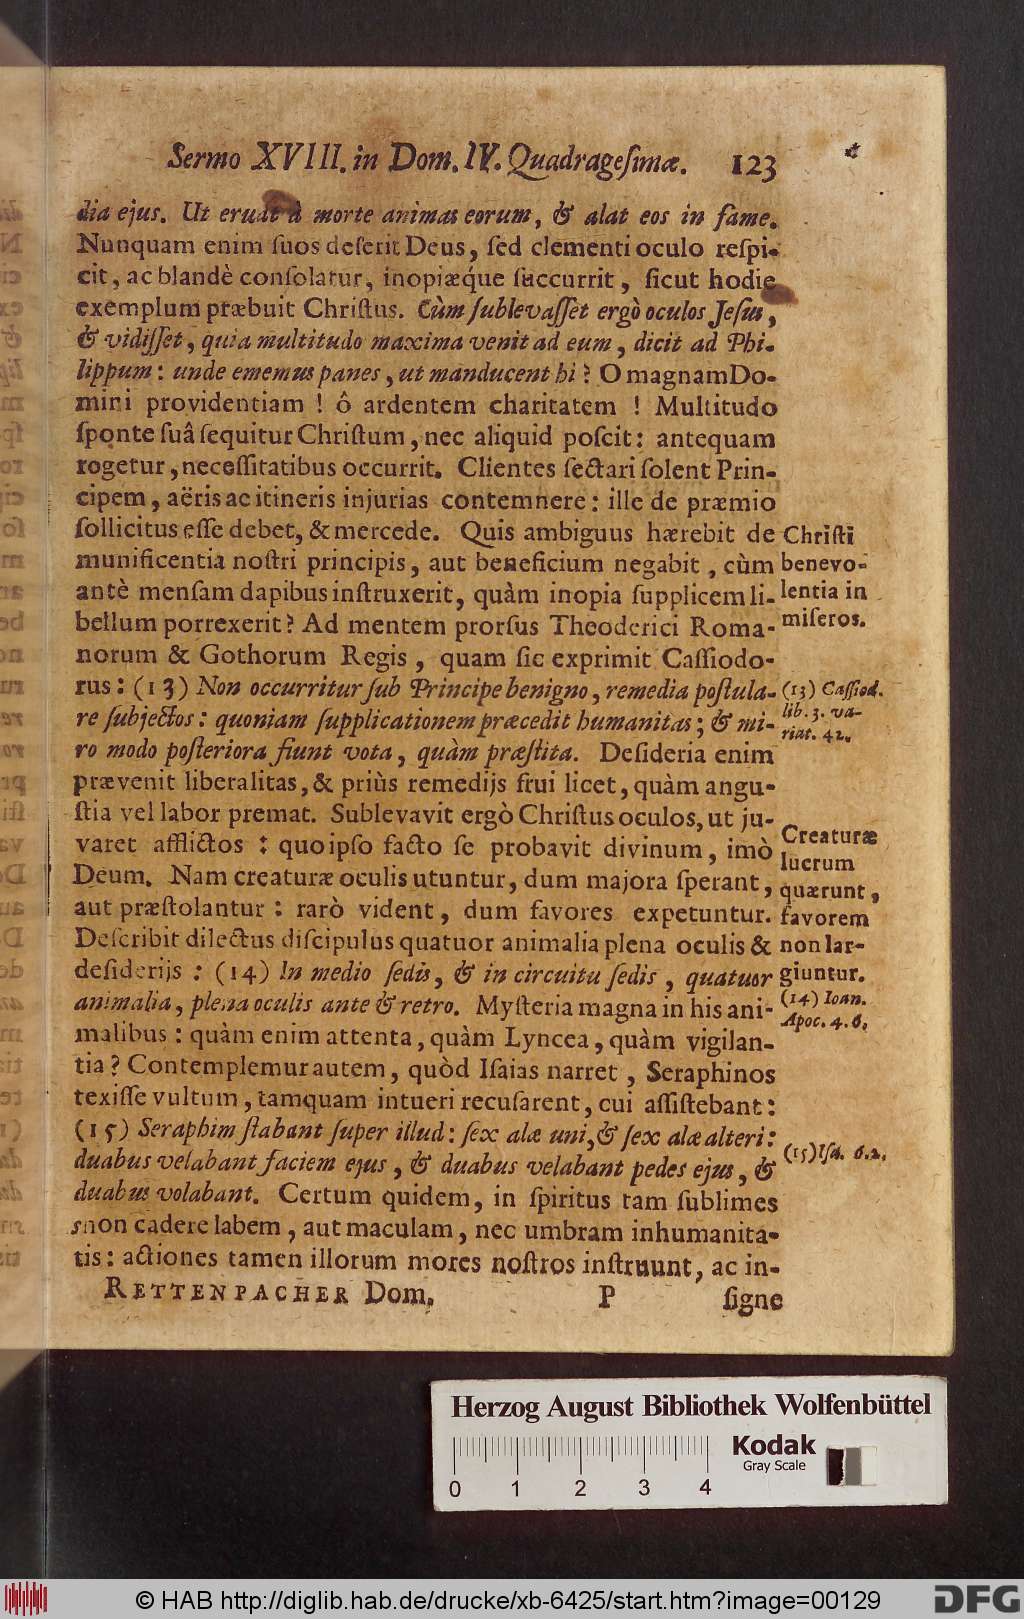 Sermo XVIII. in Dom. IV. Quadrageſimæ. 123
dia ejus. Ut eruat à morte animas eorum, & alat eos in fame.
Nunquam enim ſuos deſerit Deus, ſed clementi oculo reſpi-
cit, ac blandè conſolatur, inopiæq́ue ſuccurrit, ſicut hodie
exemplum præbuit Chriſtus. Cùm ſublevaſſet ergò oculos Jeſus,
& vidiſſet, quia multitudo maxima venit ad eum, dicit ad Phi-
lippum: unde ememus panes, ut manducent hi? O magnam Do-
mini providentiam! ô ardentem charitatem! Multitudo
ſponte ſuâ ſequitur Chriſtum, nec aliquid poſcit: antequam
rogetur, neceſſitatibus occurrit. Clientes ſectari ſolent Prin-
cipem, aëris ac itineris injurias contemnere: ille de præmio
ſollicitus eſſe debet, & mercede. Quis ambiguus hærebit de
munificentia noſtri principis, aut beneficium negabit, cùm
antè menſam dapibus inſtruxerit, quàm inopia ſupplicem li-
bellum porrexerit? Ad mentem prorſus Theoderici Roma-
norum & Gothorum Regis, quam ſic exprimit Caſſiodo-
rus: (13) Non occurritur ſub Principe benigno, remedia poſtula-
re ſubjectos: quoniam ſupplicationem præcedit humanitas; & mi-
ro modo poſteriora fiunt vota, quàm præſtita. Deſideria enim
prævenit liberalitas, & priùs remedijs frui licet, quàm angu-
ſtia vel labor premat. Sublevavit ergò Chriſtus oculos, ut ju-
varet afflictos: quo ipſo facto ſe probavit divinum, imò
Deum. Nam creaturæ oculis utuntur, dum majora ſperant,
aut præſtolantur: rarò vident, dum favores expetuntur.
Deſcribit dilectus diſcipulus quatuor animalia plena oculis &
deſiderijs: (14) In medio ſedis, & in circuitu ſedis, quatuor
animalia, plena oculis ante & retro. Myſteria magna in his ani-
malibus: quàm enim attenta, quàm Lyncea, quàm vigilan-
tia? Contemplemur autem, quòd Iſaias narret, Seraphinos
texiſſe vultum, tamquam intueri recuſarent, cui aſſiſtebant:
(15) Seraphim ſtabant ſuper illud: ſex alæ uni, & ſex alæ alteri:
duabus velabant faciem ejus, & duabus velabant pedes ejus, &
duabus volabant. Certum quidem, in ſpiritus tam ſublimes
non cadere labem, aut maculam, nec umbram inhumanita-
tis: actiones tamen illorum mores noſtros inſtruunt, ac in-
RETTENPACHER Dom. P ſigne
Chriſti
benevo-
lentia in
miſeros.
(13) Caſſiod.
lib. 3. va-
riat. 42.
Creaturæ
lucrum
quærunt,
favorem
non lar-
giuntur.
(14) Ioan.
Apoc. 4. 6.
(15) Iſa. 6. 2.
Herzog August Bibliothek Wolfenbüttel
Kodak
Gray Scale
0 1 2 3 4
© HAB http://diglib.hab.de/drucke/xb-6425/start.htm?image=00129
DFG